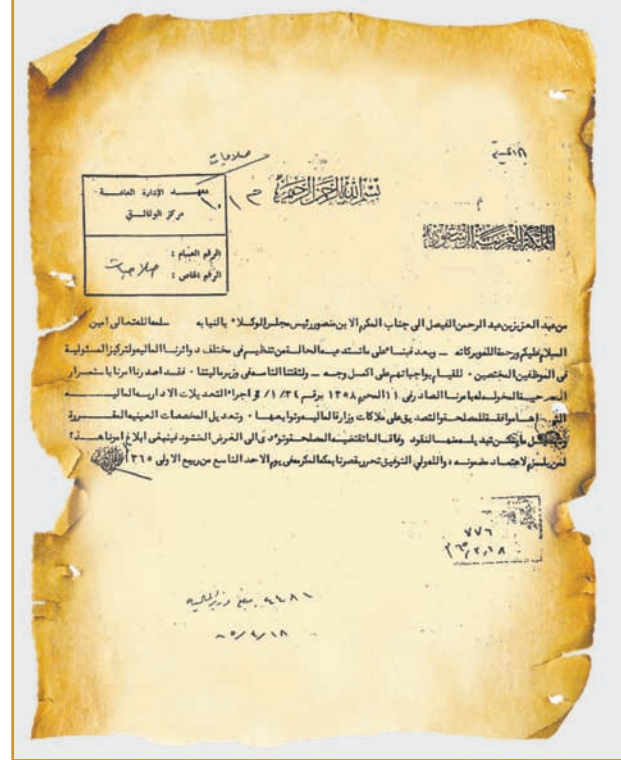 صلاحيات
بسم الله الرحمن الرحيم
معهد الإدارة العامة
مركز الوثائق
الرقم العام :
الرقم الخاص : صلاحيات
المملكة العربية السعودية
من عبد العزيز بن عبد الرحمن الفيصل الى جناب المكرم الابن منصور رئيس مجلس الوكلاء بالنيابه سلمه الله تعالى امين
السلام عليكم ورحمة الله وبركاته – وبعد فبناء على ما تستدعيه الحالة من تنظيم فى مختلف دوائرنا الماليه ولتركيز المسئولية
فى الموظفين المختصين ٠ للقيام بواجباتهم على اكمل وجه – ولثقتنا التامه فى وزير ماليتنا ٠ فقد اصدرنا امرنا باستمرار
الصلاحية المخوله له بامرنا الصادر فى ١١ المحرم ١٣٥٨ برقم ٣٤/١/ اجراء التعديلات الاداريه الماليه
موافقة للمصلحه والتصديق على ملاكات وزارة الماليه وتوابعها ٠ وتعديل المخصصات العينيه المقررة
النقود وفاقا لما تقتضيه المصلحه وتؤدى الى الغرض المنشود فينبغى ابلاغ امرنا هذا
لمن يلزم لاعتماد مضمونه ، والله ولي التوفيق تحرر بقصرنا بمكه المكرمه فى يوم الاحد التاسع من ربيع الاولى ١٣٦٥
٧٧٦
يبلغ وزير الماليه